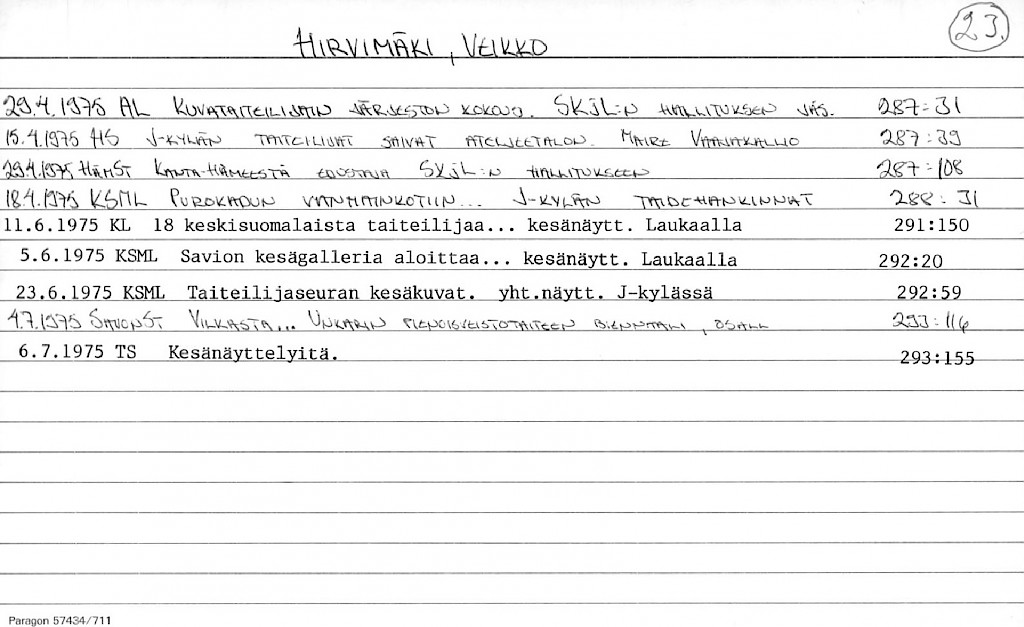 23.
HIRVIMÄKI, VEIKKO
29.4.1975 AL KUVATAITEILIJAIN JÄRJESTÖN KOKOUS. SKJL:N HALLITUKSEN JÄS. 287:31
15.4.1975 HS J-KYLÄN TAITEILIJAT SAIVAT ATELJEETALON. MAIRE VAAJAKALLIO 287:39
29.4.1975 HÄMST KANTA-HÄMEESTÄ EDUSTAJA SKJL:N HALLITUKSEEN 287:108
18.4.1975 KSML PUROKADUN VANHAINKOTIIN... J-KYLÄN TAIDEHANKINNAT 288:31
11.6.1975 KL 18 keskisuomalaista taiteilijaa... kesänäytt. Laukaalla 291:150
5.6.1975 KSML Savion kesägalleria aloittaa... kesänäytt. Laukaalla 292:20
23.6.1975 KSML Taiteilijaseuran kesäkuvat. yht.näytt. J-kylässä 292:59
4.7.1975 SAVONST VILKASTA... UNKARIN PIENOISVEISTOTAITEEN BIENNAALI, OSALL 293:116
6.7.1975 TS Kesänäyttelyitä. 293:155
Paragon 57434/711